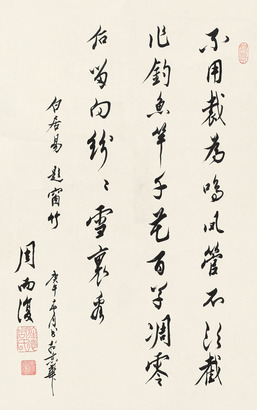 不用裁为鸣凤管不须截
作钓鱼竿千花百草凋零
后留向纷纷雪裏看
白居易题窗竹
周而復